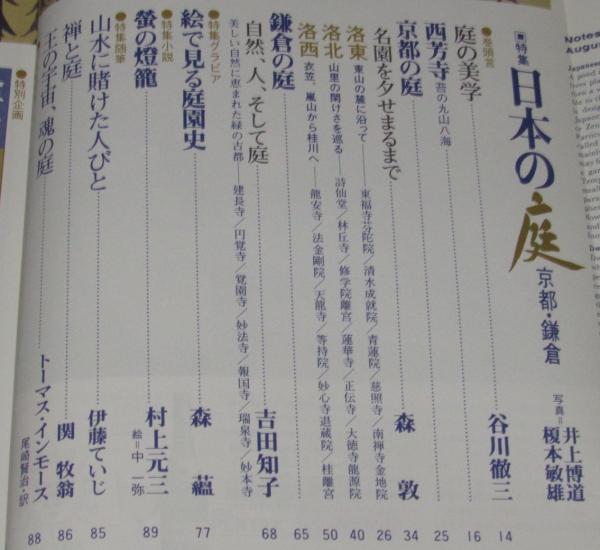 ■特集
日本の庭 京都・鎌倉
写真＝井上博道
榎本敏雄
●巻頭言
庭の美学 谷川徹三 14
西芳寺 苔の九山八海 16
京都の庭 25
名園を夕せまるまで 森 敦 34
洛東 東山の麓に沿って 東福寺芬陀院／清水成就院／青蓮院／慈照寺／南禅寺金地院 26
洛北 山里の閑けさを巡る 詩仙堂／林丘寺／修学院離宮／蓮華寺／正伝寺／大徳寺龍源院 40
洛西 衣笠、嵐山から桂川へ 龍安寺／法金剛院／天龍寺／等持院／妙心寺退蔵院／桂離宮 50
鎌倉の庭 65
自然、人、そして庭 吉田知子 68
美しい自然に恵まれた緑の古都 建長寺／円覚寺／覚園寺／妙法寺／報国寺／瑞泉寺／妙本寺
●特集グラビア
絵で見る庭園史 森 蘊 77
●特集小説
螢の燈籠 村上元三 絵＝中 一弥 89
●特集随筆
山水に賭けた人びと 伊藤ていじ 85
禅と庭 関 牧翁 86
王の宇宙、魂の庭 トーマス・インモース 尾崎賢治・訳 88
●特別企画
Notes
Augu
Japanese